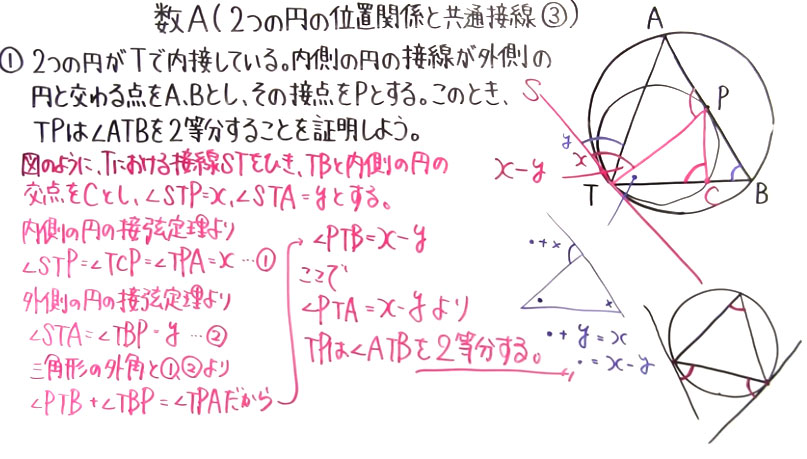 数A(2つの円の位置関係と共通接線③)
① 2つの円がTで内接している。内側の円の接線が外側の
円と交わる点をA、Bとし、その接点をPとする。このとき、
TPは∠ATBを2等分することを証明しよう。
図のように、Tにおける接線STをひき、TBと内側の円の
交点をCとし、∠STP=x、∠STA=yとする。
内側の円の接弦定理より
∠STP=∠TCP=∠TPA=x…①
外側の円の接弦定理より
∠STA=∠TBP=y…②
三角形の外角と①,②より
∠PTB+∠TBP=∠TPAだから
∠PTB=x-y
ここで
∠PTA=x-yより
TPは∠ATBを2等分する。
A
S
P
y
x
x-y
T
C
B
•+x
•
x
•+y=x
•=x-y